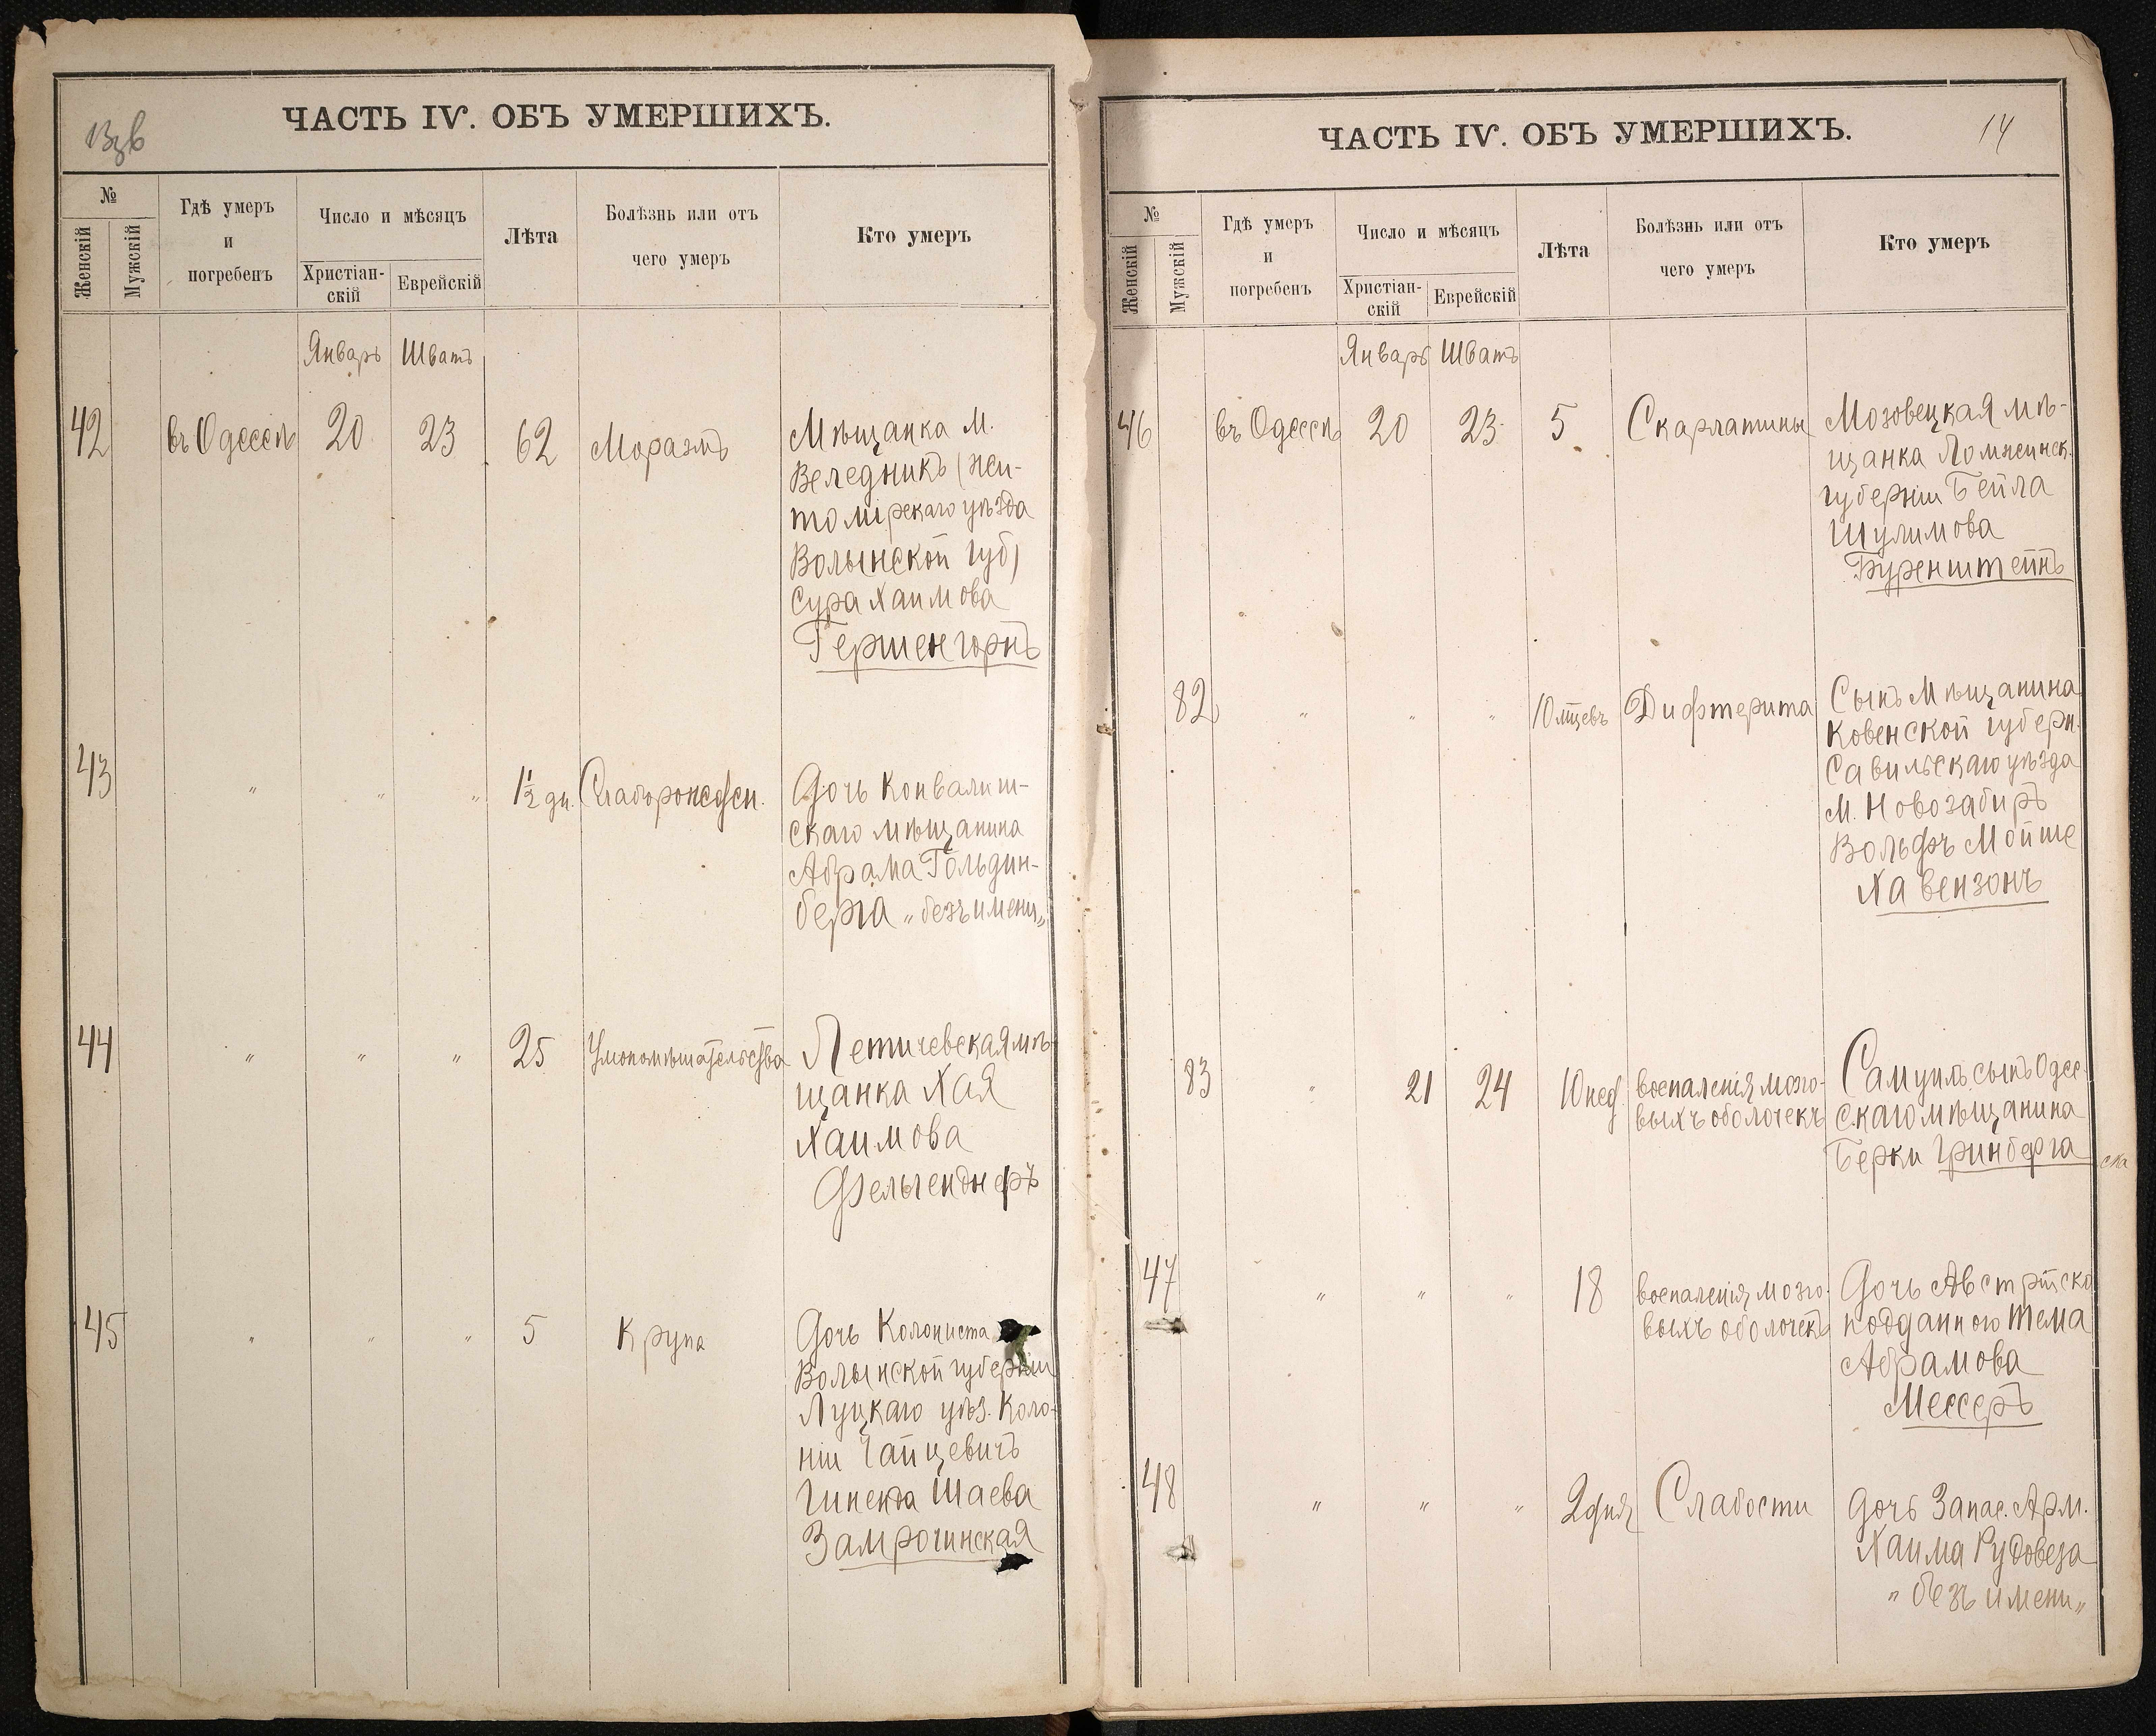 ЧАСТЬ IV. ОБЪ УМЕРШИХЪ.
№
Женскій
Мужскій
Гдѣ умеръ
и
погребенъ
Число и мѣсяцъ
Христіан-
скій
Еврейскій
Лѣта
Болѣзнь или отъ
чего умеръ
Кто умеръ
Январь Шватъ
42 въ Одессѣ 20 23 62 Моразмъ
Мѣщанка М.
Веледникъ (жи-
томірскаго уѣзда
Волынской губ)
Сура Хаимова
Гершенгорнъ
43 " " " 1½ дн.
Дочь Конвалиш-
скаго мѣщанина
Абрама Гольдин-
берга „безъ имени„
44 " " " 25 Умопомѣшательства
Летичевская мѣ-
щанка Хая
Хаимова
45 " " " 5 Крупа
Дочь Колониста
Волынской губерніи
Луцкаго уѣз. Коло-
ніи
Шаева
ЧАСТЬ IV. ОБЪ УМЕРШИХЪ.
14
№
Женскій
Мужскій
Гдѣ умеръ
и
погребенъ
Число и мѣсяцъ
Христіан-
скій
Еврейскій
Лѣта
Болѣзнь или отъ
чего умеръ
Кто умеръ
Январь Шватъ
46 въ Одессѣ 20 23 5 Скарлатины
Мозовецкая мѣ-
щанка Ломжинск.
губерніи Бейла
Шулимова
Буренштейнъ
82 " " " 10 мѣцевъ Дифтерита
Сынъ Мѣщанина
Ковенской губерн.
Савильскаго уѣзда
М. Новозабиръ
Вольфъ Мойше
Хавензонъ
83 " 21 24 10 нед воспаленія мозго-
выхъ оболочекъ
Самуилъ сынъ Одес-
скаго мѣщанина
Берки Гринберга
47 " " " 18 воспаленія мозго-
выхъ оболочекъ
Дочь Австрійско
подданного Тема
Абрамова
Мессеръ
48 " " " 2 дня Слабости
Дочь Запас. Арм.
Хаима Рудовеза
„ безъ имени „